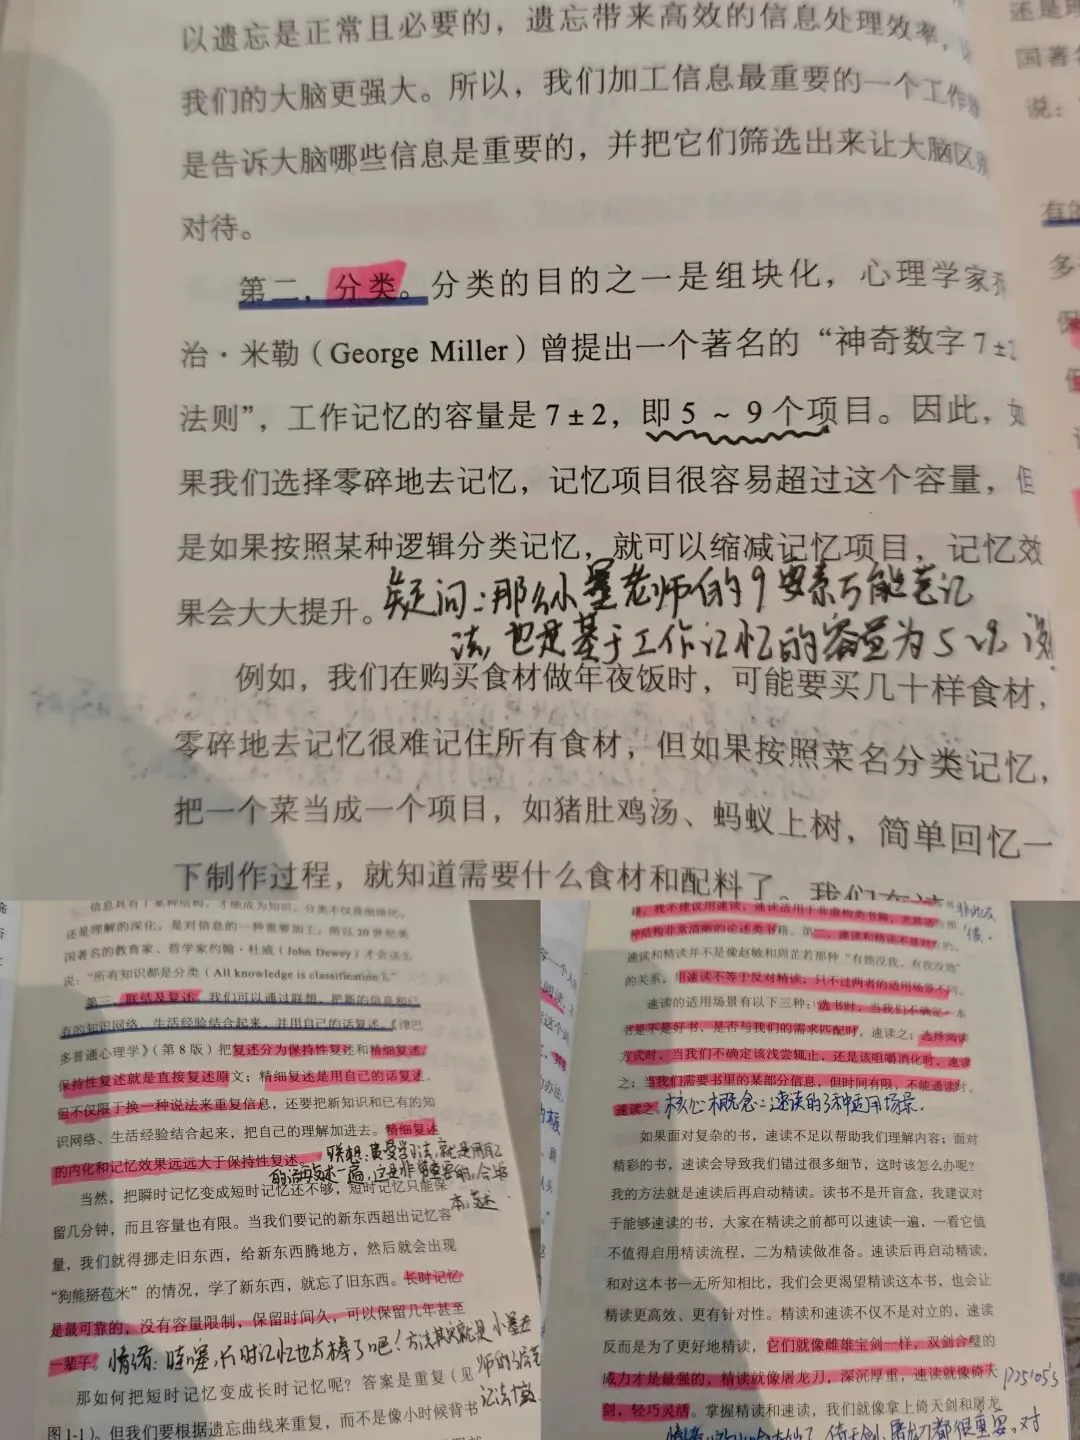 以遗忘是正常且必要的，遗忘带来高效的信息处理效率，
我们的大脑更强大。所以，我们加工信息最重要的一个工作
是告诉大脑哪些信息是重要的，并把它们筛选出来让大脑区
对待。
第二，分类。分类的目的之一是组块化，心理学家
治·米勒（George Miller）曾提出一个著名的“神奇数字7±2
法则”，工作记忆的容量是7±2，即5～9个项目。因此，如
果我们选择零碎地去记忆，记忆项目很容易超过这个容量，但
是如果按照某种逻辑分类记忆，就可以缩减记忆项目，记忆效
果会大大提升。
疑问：那么小墨老师的9要素万能笔记
法，也是基于工作记忆的容量为5~9
例如，我们在购买食材做年夜饭时，可能要买几十样食材，
零碎地去记忆很难记住所有食材，但如果按照菜名分类记忆，
把一个菜当成一个项目，如猪肚鸡汤、蚂蚁上树，简单回忆一
下制作过程，就知道需要什么食材和配料了。我们在
还是理
国著名
说：
有的
多
保
信息具有了某种结构，才能成为知识。分类不仅是组块化，
还是理解的深化，是对信息的一种重要加工。所以20世纪美
国著名的教育家、哲学家约翰·杜威（John Dewey）才会这么
说：“所有知识都是分类（All knowledge is classification）。”
第三，联结及复述。我们可以通过联想，把新的信息和已
有的知识网络、生活经验结合起来，并用自己的话复述。《津巴
多普通心理学》（第8版）把复述分为保持性复述和精细复述，
保持性复述就是直接复述原文；精细复述是用自己的话复述，
但不仅限于换一种说法来重复信息，还要把新知识和已有的知
识网络、生活经验结合起来，把自己的理解加进去。精细复述
的内化和记忆效果远远大于保持性复述。
联想：费曼学习法，就是用自己
的话复述一遍，这是非常重要的，合书
本，复述
当然，把瞬时记忆变成短时记忆还不够，短时记忆只能保
留几分钟，而且容量也有限。当我们要记的新东西超出记忆容
量，我们就得挪走旧东西，给新东西腾地方，然后就会出现
“狗熊掰苞米”的情况，学了新东西，就忘了旧东西。长时记忆
是最可靠的，没有容量限制，保留时间久，可以保留几年甚至
一辈子。
情绪：哇噻，长时记忆也太棒了吧！方法其实就是小墨老
师的
记法
那如何把短时记忆变成长时记忆呢？答案是重复（见
图1-1）。但我们要根据遗忘曲线来重复，而不是像小时候背书
籍，我不建议用速读，速读适用于非虚构类书籍，尤其是
种结构非常清晰的论述类书籍。第二，速读和精读不是对立的。
速读和精读并不是像赵敏和周芷若那种“有她没我，有我没她”
的关系，用速读不等于反对精读，只不过两者的适用场景不同。
速读的适用场景有以下三种：选书时，当我们不确定一本
书是不是好书，是否与我们的需求匹配时，速读之；选择阅读
方式时，当我们不确定该浅尝辄止，还是该咀嚼消化时，速读
之；当我们需要书里的某部分信息，但时间有限，不能通读时，
速读之。
核心概念：速读的3种适用场景.
如果面对复杂的书，速读不足以帮助我们理解内容；面对
精彩的书，速读会导致我们错过很多细节，这时该怎么办呢？
我的方法就是速读后再启动精读。读书不是开盲盒，我建议对
于能够速读的书，大家在精读之前都可以速读一遍，一看它值
不值得启用精读流程，二为精读做准备。速读后再启动精读，
和对这本书一无所知相比，我们会更渴望精读这本书，也会让
精读更高效、更有针对性。精读和速读不仅不是对立的，速读
反而是为了更好地精读，它们就像雌雄宝剑一样，双剑合璧的
威力才是最强的，精读就像屠龙刀，深沉厚重，速读就像倚天
剑，轻巧灵活。掌握精读和速读，我们就像拿上倚天剑和屠龙